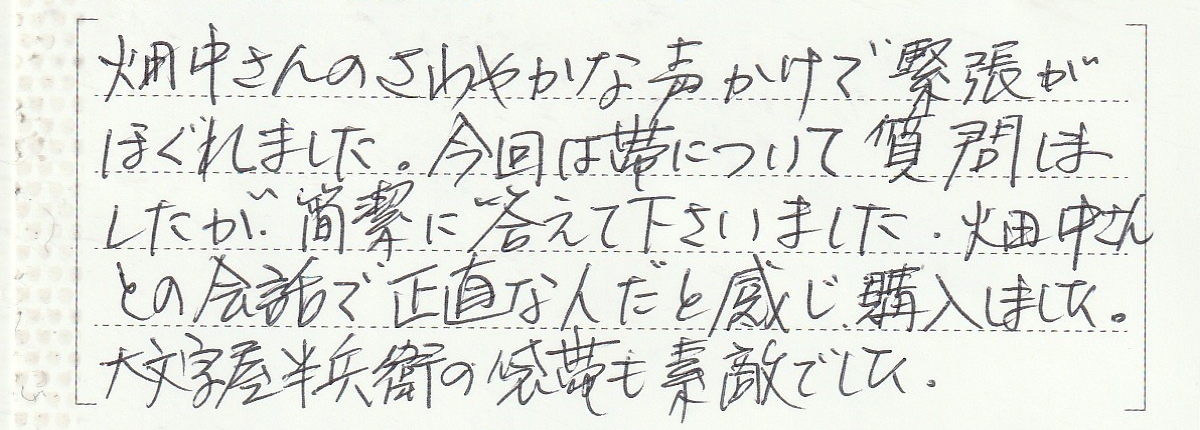 畑中さんのさわやかな声かけで緊張が
ほぐれました。今回は帯について質問しま
したが、簡潔に答えて下さいました。畑中さん
との会話で正直な人だと感じ、購入しました。
大文字屋半兵衛の袋帯も素敵でした。